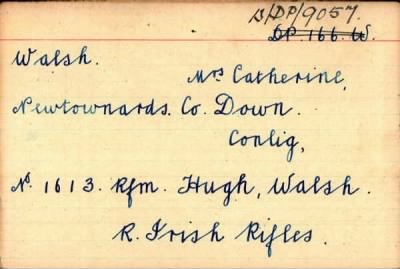 B/DP/9057.
DP. 166. W.
Walsh.
Mrs Catherine,
Newtownards. Co. Down.
Conlig,
No. 1613. Rfm. Hugh, Walsh.
R. Irish Rifles.